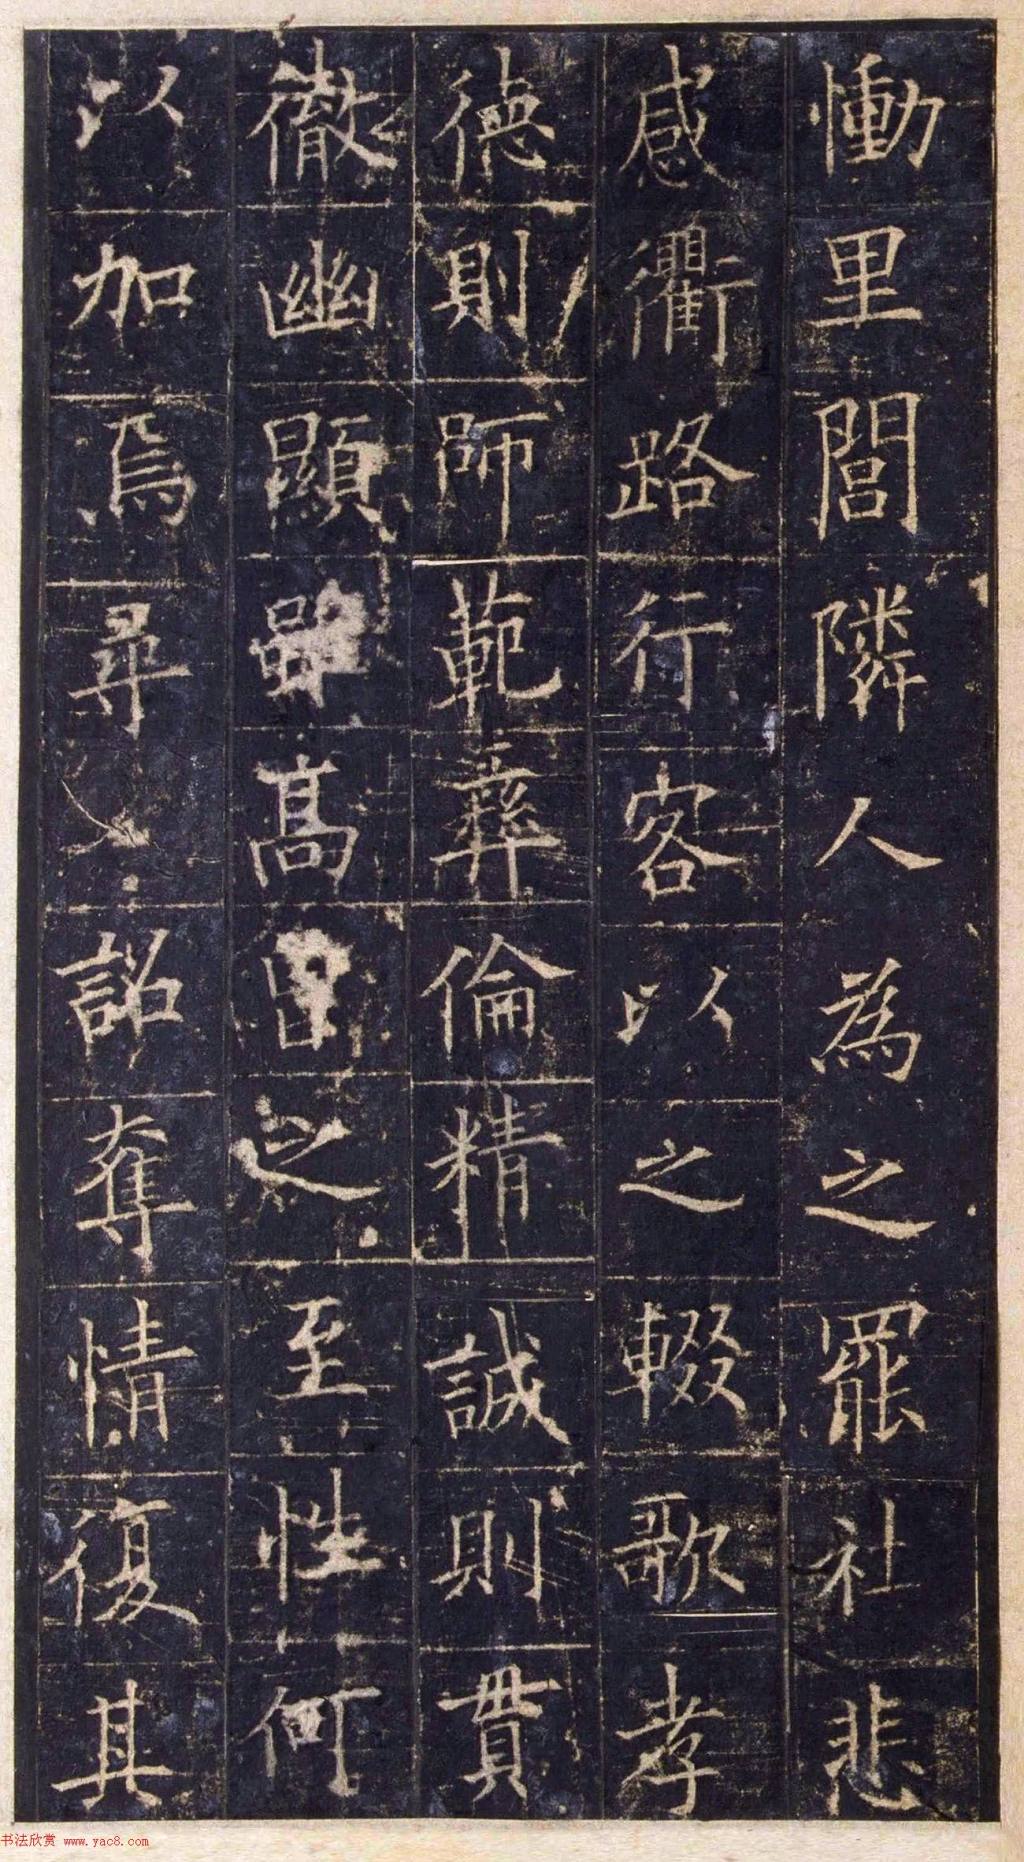 慟里閭隣人為之罷社悲
感衢路行客以之輟歌孝
德則師範彝倫精誠則貫
徹幽顯雖高曾之至性何
以加焉尋 詔奪情復其
书法欣赏 www.yac8.com